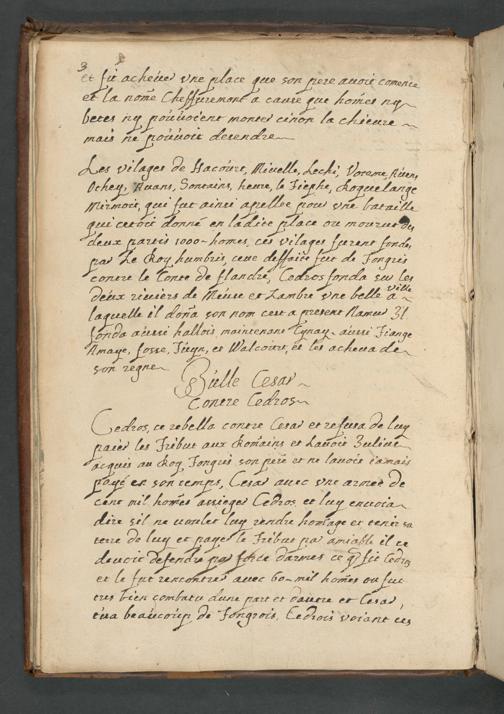 3
et fit achever vne place que son pere avoit comencé
et la nomé Cheffuremont a cause que homes ny
betes ny pouvoient monter sinon la chieure
mais ne pouvoit desendre
Les vilages de Hacourt, Nivelle, Lechi, Voreme, Rivens
Ochey, Avans, Fontains, heure le Tiephe, Roquelange
Mirmoir, qui fut ainsi apellee pour vne bataille
qui cetoit donné en ladite place ou mourut des
deux partis 1000 homes, ces vilages furent fondes
par le Roy humbris, ceue deffaite fut de Tongris
contre le Conte de flandre, Cedros fonda sur les
deux riviers de Meuse et Sambre vne belle ville a
laquelle il dona son nom cest a present Namur Il
fonda aussi hallois maintenant Tynay aussi Fiange
Amaye, fosse, Tieyn, et Walcourt, et les acheva de
son regne
Bielle Cesar
Contre Cedros
Cedros, ce rebella contre Cesar et refusa de luy
paier les Tribut aux Romains et lavoit Julius
acquis au Roy Tongris son pere et ne lavoit iamais
payé en son temps, Cesar avec vne armée de
cent mil homes assieger Cedros et luy envoia
dire sil ne vouloit luy rendre homage et tenir sa
terre de luy et payer le Tribut par amiable il ce
devoit defendre par force darmes ce q fit Cedros
et le fut rencontrer avec 60 mil homes ou fut
tres bien combatu dune part et dautre et Cesar,
tua beaucoup de Tongrois, Cedrois voiant ces